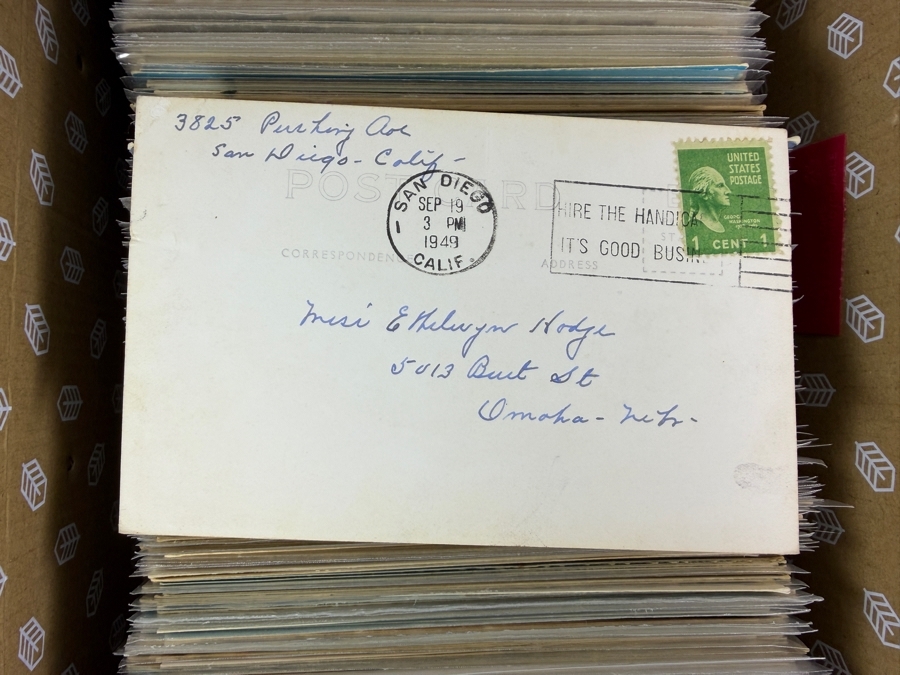 3825 Pershing Ave
San Diego - Calif -
POST CARD
SAN DIEGO
SEP 19
3 PM
1949
CALIF.
HIRE THE HANDICA
IT'S GOOD BUSIN
UNITED
STATES
POSTAGE
GEORGE
WASHINGTON
1 CENT 1
CORRESPONDENCE
ADDRESS
Miss Ethelwyn Hodge
5013 Burt St
Omaha - Nebr -